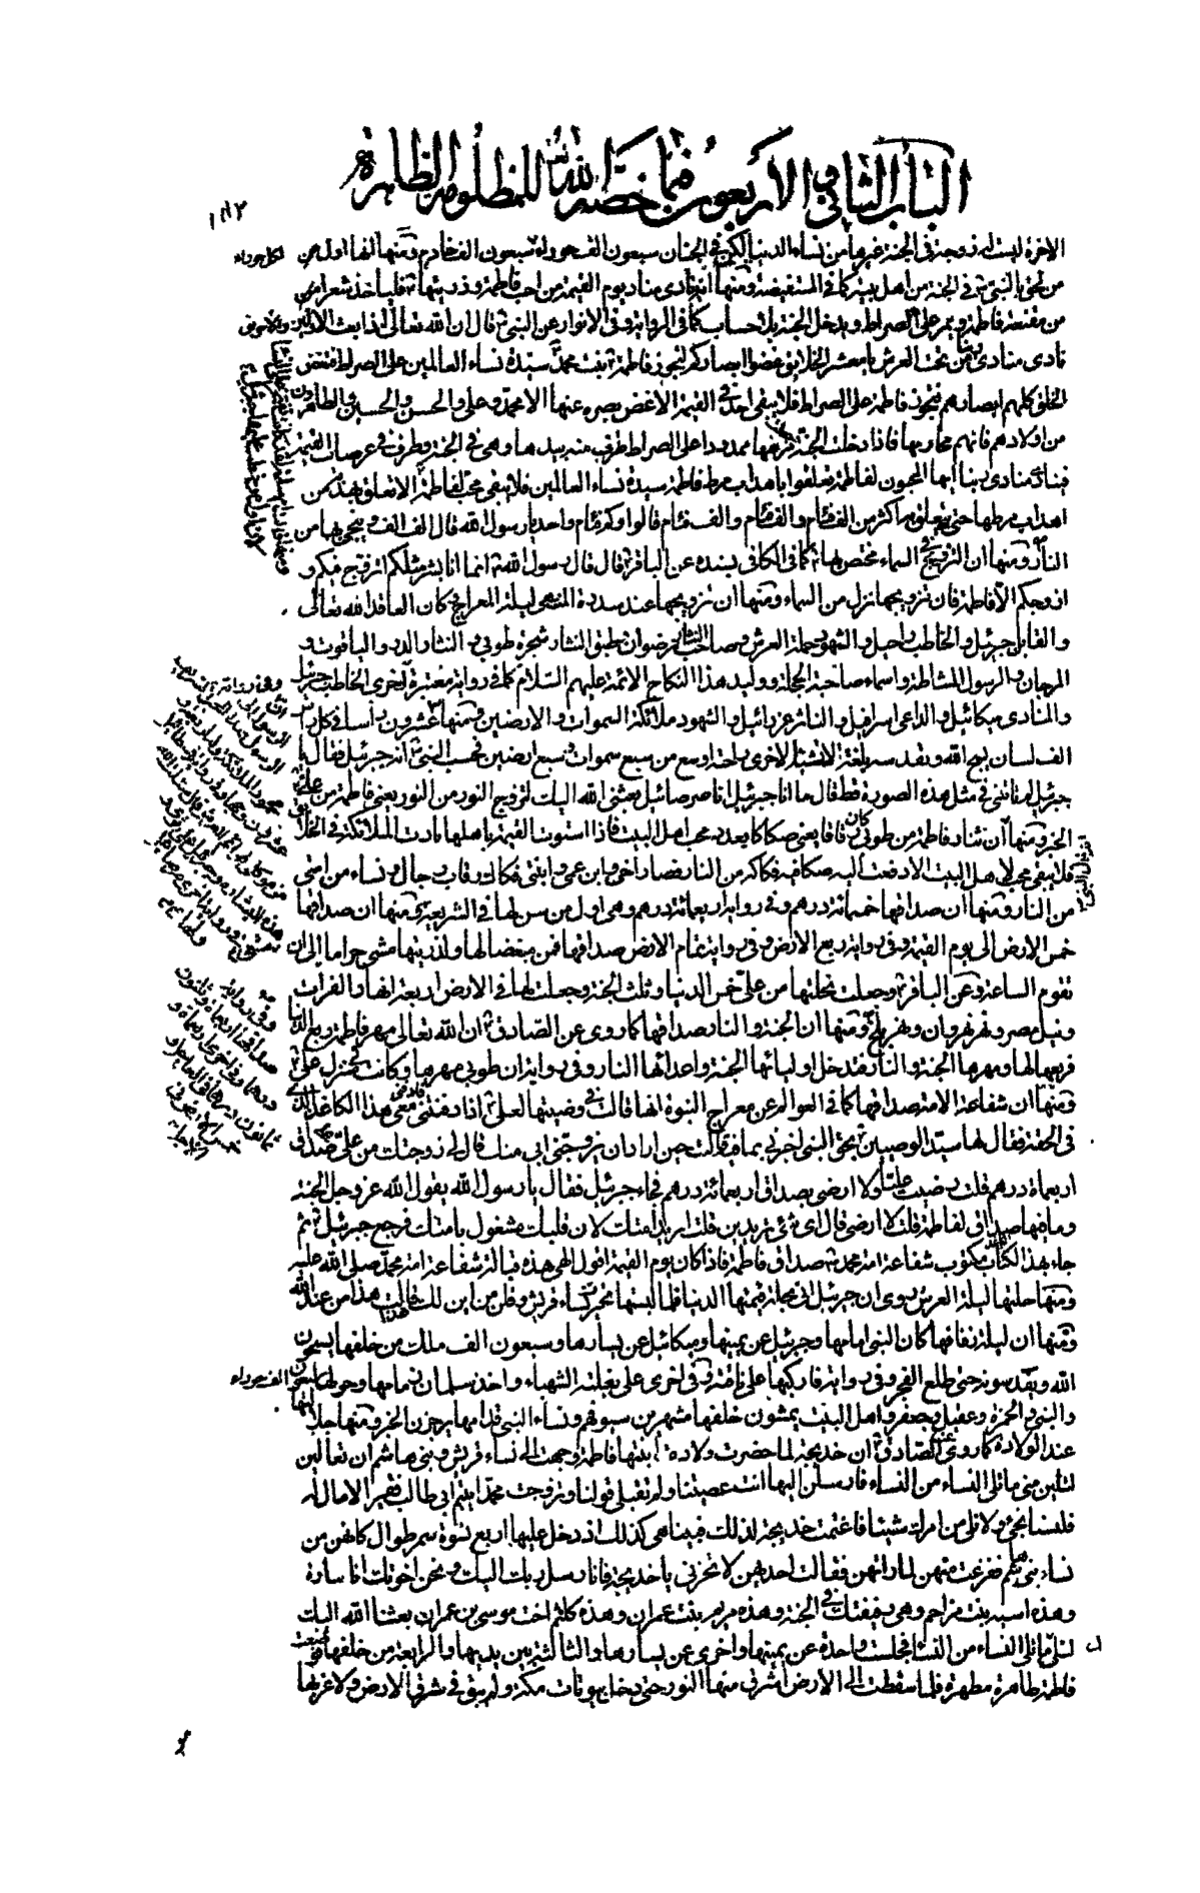 الباب الثاني و الاربعون فيما خصه الله للمظلومة الطاهرة
١١٢
الاخرة ليست له زوجة في الجنة غيرها من نساء الدنيا لكن في الجنان سبعون الف حوراء لكل حوراء سبعون الف خادم و منها انها اول من
من لحق بالنبي في الجنة من اهل بيته كما في المستفيضة و منها انه ينادي مناد يوم القيمة من احب فاطمة و ذريتها فلياخذ شعرا من
من مقنعة فاطمة و يمر على الصراط و يدخل الجنة بلا حساب كما في الرواية و في الانوار عن النبي قال ان الله تعالى اذا بعث الاولين و الاخرين
نادى منادي ربنا من تحت العرش يا معشر الخلائق غضوا ابصاركم لتجوز فاطمة بنت محمد سيدة نساء العالمين على الصراط فتغض
الخلق كلهم ابصارهم فتجوز فاطمة على الصراط فلا يبقى احد في القيمة الا غض بصره عنها الا محمد و علي و الحسن و الحسين و الطاهرون
من اولادهم فانهم محارمها فاذا دخلت الجنة بقي مرطها ممدودا على الصراط طرف منه بيدها و هي في الجنة و طرف في عرصات القيمة
فينادي منادي ربنا ايها المحبون لفاطمة تعلقوا باهداب مرط فاطمة سيدة نساء العالمين فلا يبقى محب لفاطمة الا تعلق بهدبة من
اهداب مرطها حتى يتعلق بها اكثر من الف فئام و الف فئام و الف فئام قالوا و كم فئام واحد يا رسول الله قال الف الف و ينجى بها من
النار و منها ان التزويج في السماء مختص بها كما في الكافي بسنده عن الباقر قال قال رسول الله انما انا بشر مثلكم اتزوج فيكم و
ازوجكم الا فاطمة فان تزويجها نزل من السماء و منها ان تزويجها عند سدرة المنتهى ليلة المعراج و كان العاقد الله تعالى
و القابل جبرئيل و الخاطب راحيل و الشهود حملة العرش و صاحب النثار رضوان و طبق النثار شجرة طوبى و النثار الدر و الياقوت و
المرجان و الرسول الماشطة و اسماء صاحبة الحجلة و وليد هذا النكاح الائمة عليهم السلام كما في رواية معتبرة اخرى الخاطب جبرئيل
و المنادي ميكائيل و الداعي اسرافيل و الناثر عزرائيل و الشهود ملائكة السموات و الارضين و منها عشرون راسا في كل راس
الف لسان يسبح الله و يقدسه بلغة لا تشبه الاخرى راحته اوسع من سبع سموات و سبع ارضين فحسب النبي انه جبرئيل فقال يا
جبرئيل لم تاتني في مثل هذه الصورة قط فقال ما انا جبرئيل انا صرصائيل بعثني الله اليك لتزوج النور من النور يعني فاطمة من علي
الخبر و منها ان نثار فاطمة من طوبى كان رقاقا يعني صكاكا بعدد محب اهل البيت فاذا استوت القيمة باهلها نادت الملائكة في الخلائق
فلا يبقى محب لاهل البيت الا دفعت اليه صكا فيه فكاكه من النار فصار اخي و ابن عمي و ابنتي فكاك رقاب رجال و نساء من امتي
من النار و منها ان صداقها خمسمائة درهم و في رواية اربعمائة درهم و هي اول من سن لها في الشريعة و منها ان صداقها
خمس الارض الى يوم القيمة و في رواية ربع الارض و في رواية تمام الارض صداقها فمن مبغضا لها و لذريتها مشى حراما الى ان
تقوم الساعة و عن الباقر و جعلت نحلتها من علي خمس الدنيا و ثلث الجنة و جعلت لها في الارض اربعة انهار الفرات
و نيل مصر و نهروان و نهر بلخ و منها ان الجنة و النار صداقها كما روي عن الصادق ان الله تعالى مهر فاطمة ربع الدنيا
فربعها لها و مهرها الجنة و النار فتدخل اوليائها الجنة و اعدائها النار و في رواية ان طوبى مهرها و كانت في منزل علي
و منها ان شفاعة الامة صداقها كما في العوالم عن معراج النبوة انها قالت في وصيتها لعلي اذا دفنتني فادفن معي هذا الكاغذ الذي
في الحقة فقال لها سيد الوصيين بحق النبي اخبريني بما فيه قالت حين اراد ان يزوجني ابي منك قال لي زوجتك من علي صداق
اربعمائة درهم قلت رضيت عليا و لا ارضى بصداق اربعمائة درهم فجاء جبرئيل فقال يا رسول الله يقول الله عز و جل الجنة
و ما فيها صداق لفاطمة قلت لا ارضى قال اي شيء تريدين قلت اريد امتك لان قلبك مشغول بامتك فرجع جبرئيل ثم
جاء بهذا الكتاب مكتوب شفاعة امة محمد صداق فاطمة فاذا كان يوم القيمة اقول الهي هذه قبالة شفاعة امة محمد صلى الله عليه
و منها حلتها ليلة العرس روي ان جبرئيل اتى بحلة قيمتها الدنيا فلما البستها تحيرت نساء قريش و قلن من اين لك هذا قالت هذا من عند الله
و منها ان ليلة زفافها كان النبي امامها و جبرئيل عن يمينها و ميكائيل عن يسارها و سبعون الف ملك من خلفها يسبحون
الله و يقدسونه حتى طلع الفجر و في رواية فاركبها على ناقته و في اخرى على بغلته الشهباء و اخذ سلمان زمامها و حولها سبعون الف حوراء
و النبي و الحمزة و عقيل و جعفر و اهل البيت يمشون خلفها مشهرين سيوفهم و نساء النبي قدامها يرجزن الخبر و منها
عند الولادة كما روي عن الصادق ان خديجة لما حضرت ولادة ابنتها فاطمة وجهت الى نساء قريش و بني هاشم ان تعالين
لتلين مني ما تلي النساء من النساء فارسلن اليها انت عصيتنا و لم تقبلي قولنا و تزوجت محمدا يتيم ابي طالب فقيرا لا مال له
فلسنا نجيء و لا نلي من امرك شيئا فاغتمت خديجة لذلك فبينما هي كذلك اذ دخل عليها اربع نسوة سمر طوال كانهن من
نساء بني هاشم ففزعت منهن لما راتهن فقالت احديهن لا تحزني يا خديجة فانا رسل ربك اليك و نحن اخوتك انا سارة
و هذه اسية بنت مزاحم و هي رفيقتك في الجنة و هذه مريم بنت عمران و هذه كلثم اخت موسى بن عمران بعثنا الله اليك
لنلي ما تلي النساء من النساء فجلست واحدة عن يمينها و اخرى عن يسارها و الثالثة بين يديها و الرابعة من خلفها فوضعت
فاطمة طاهرة مطهرة فلما سقطت الى الارض اشرق منها النور حتى دخل بيوتات مكة و لم يبق في شرق الارض و لا غربها